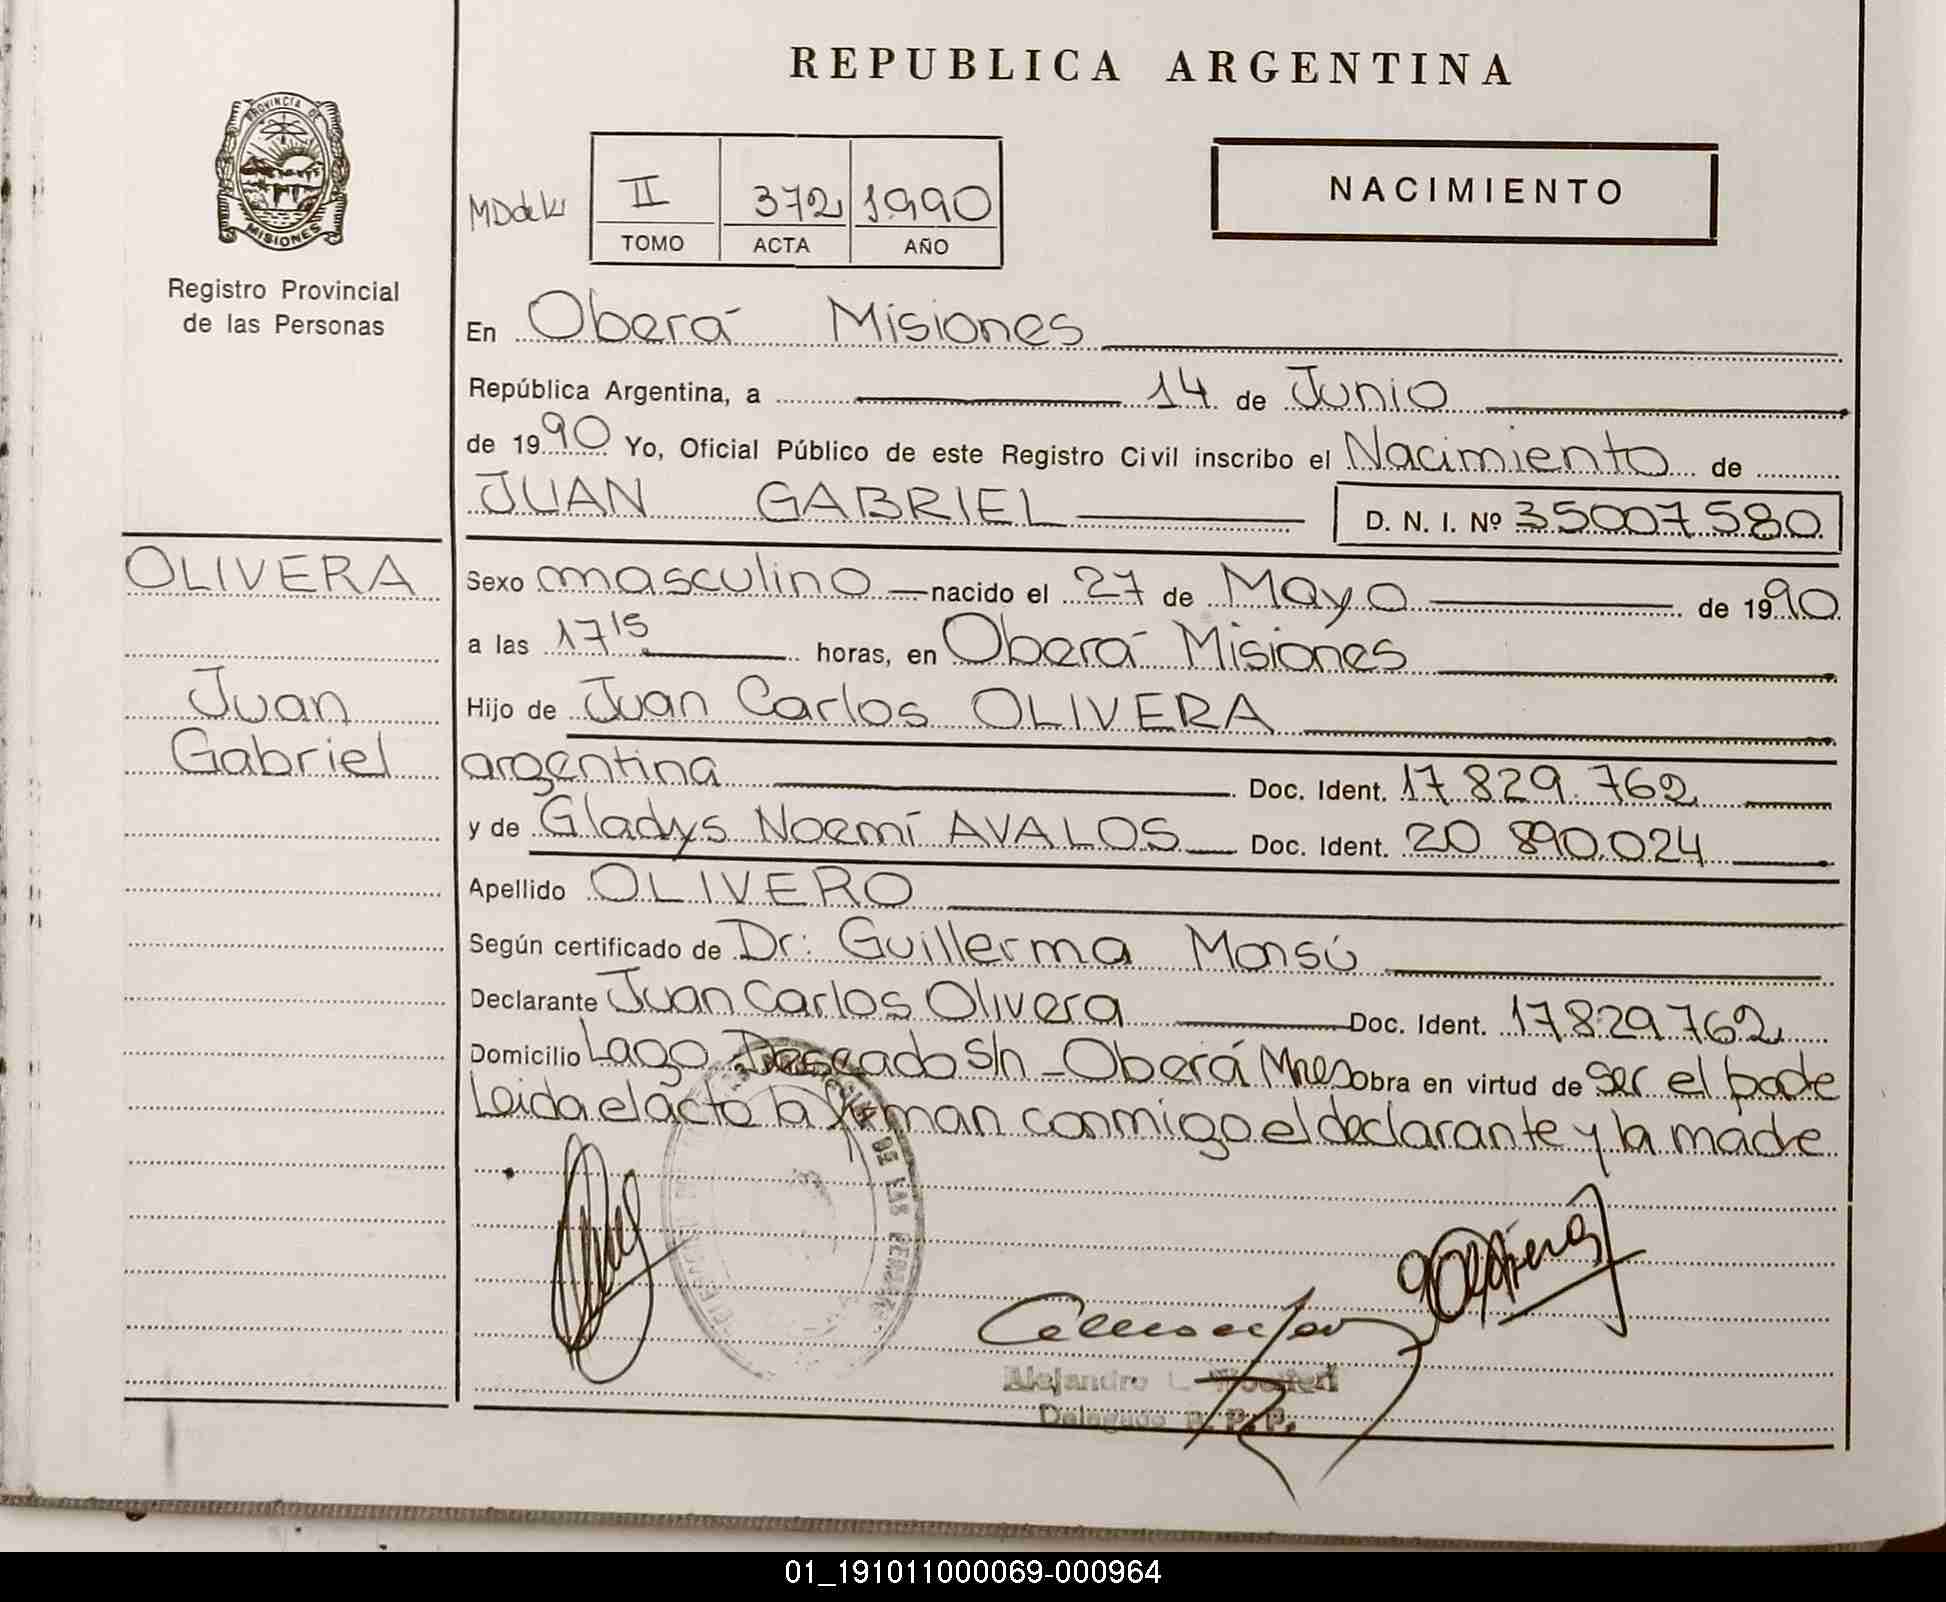 REPUBLICA ARGENTINA
PROVINCIA DE
MISIONES
Registro Provincial
de las Personas
II 372 1990
TOMO ACTA AÑO
NACIMIENTO
En Oberá Misiones
República Argentina, a 14 de Junio
de 1990 Yo, Oficial Público de este Registro Civil inscribo el Nacimiento de
JUAN GABRIEL D. N. I. Nº 35007580
OLIVERA
Juan
Gabriel
Sexo masculino nacido el 27 de Mayo de 1990
a las 17 15 horas, en Oberá Misiones
Hijo de Juan Carlos OLIVERA
argentina Doc. Ident. 17.829.762
y de Gladys Noemí AVALOS Doc. Ident. 20 890.024
Apellido OLIVERO
Según certificado de Dr: Guillerma Monsú
Declarante Juan Carlos Olivera Doc. Ident. 17829762
Domicilio Lago Deseado S/n - Oberá Mnes obra en virtud de ser el pade
Leida el acto la firman conmigo el declarante y la madre
DE LAS
Alejandro L.
Delegado R. P. P.
01_191011000069-000964